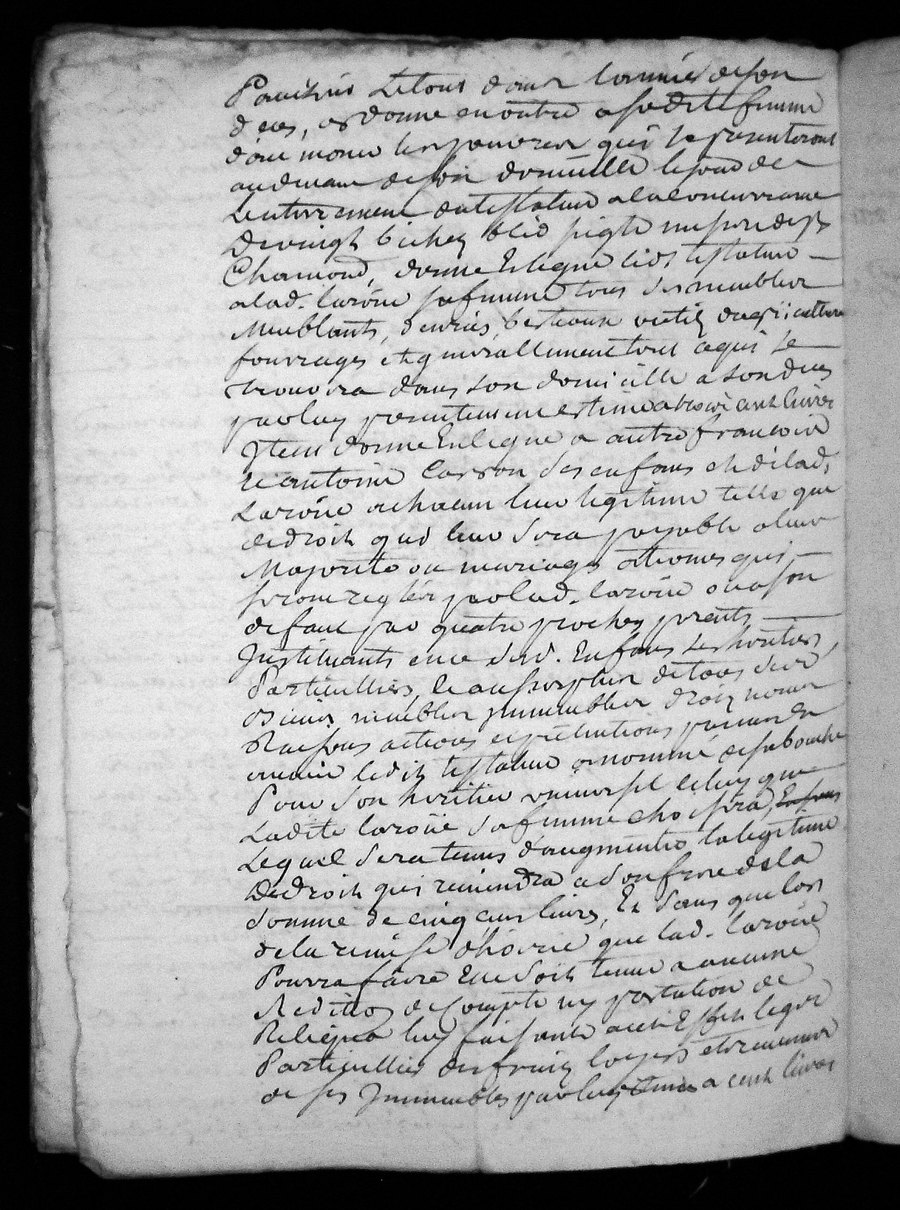 Parroisse le tout dans l'année de son
deces, et donne en outre a sa dite femme
daumoner les pauvres qui se presenteront
au devant de son domicille le jour de
L'enterrement du testateur a la concurrance
De vingt bichez bled seigle mesure de St
Chamond, donne Et legue led. testateur
a lad. Laroüe sa femme tous ses meubles
Meublants, denrées, bestiaux outils dagriculture
fourrages et generallement tout ce qui se
trouvera dans son domicille a son deces
par luy presentement estimé a trois cent livres
Item donne Et legue a autre francois
et antoine ses enfans et de lad.
Laroüe a chacun leur legitime telle que
de droit qui leur sera payable a leur
Majorité ou mariage et termes qui
seront reglés par lad. Laroüe ou a son
defaut par quatre proches parents
Instituants en ce sesd. Enfans ses heritiers
Particulliers, Et au surplus de tous ses
biens meubles immeubles droits noms
Raisons actions et pretentions presents Et
avenir ledit testateur a nommé de sa bouche
Pour son heritier universel celuy que
Ladite Laroüe sa femme choisira,
Lequel sera tenus d'augmenter la legitime
De droit qui reviendra a son frere de la
somme de cinq cent livres, Et sans que lors
de la remise d'hoirie que lad. Laroüe
Pourra faire Elle soit tenue a aucune
Reddition de Compte ny prestation de
Reliqua luy faisant a cet Effet legat
Particullier des fruits loyers et revenus
de ses Immeubles par luy a cent livres